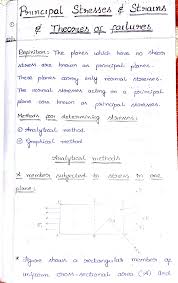 Principal Stresses & Strains
& Theories of failures
Definition: The planes which have no shear
stress are known as principal planes.
These planes carry only normal stresses.
The normal stresses acting on a principal
plane are known as principal stresses.
Methods for determining stresses:
① Analytical method
② Graphical method
Analytical methods
* member subjected to stress in one
plane:
* figure shows a rectangular member of
uniform cross-sectional area (A) and